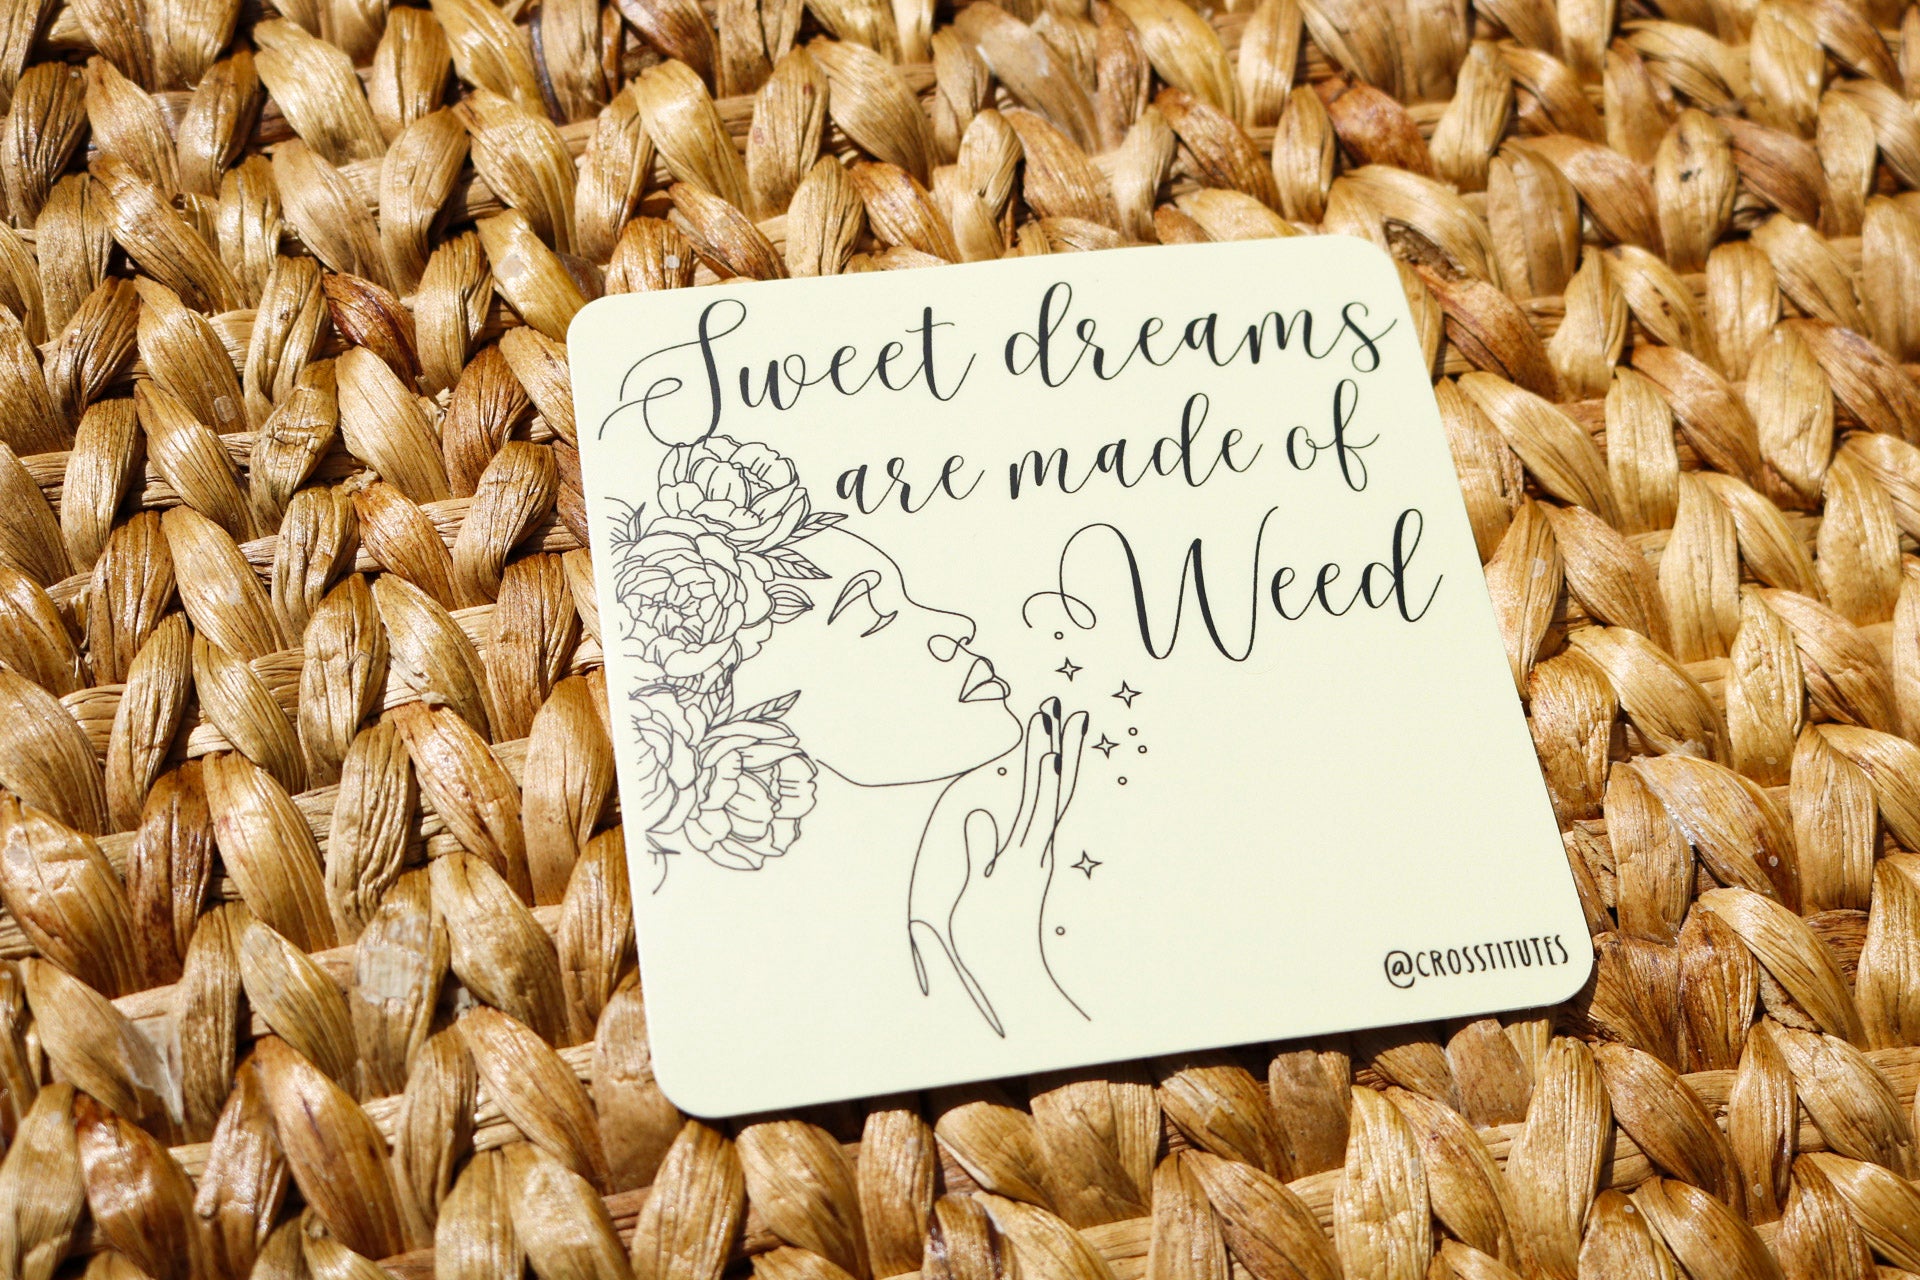 Sweet dreams
are made of
Weed
@CROSSTITUTES